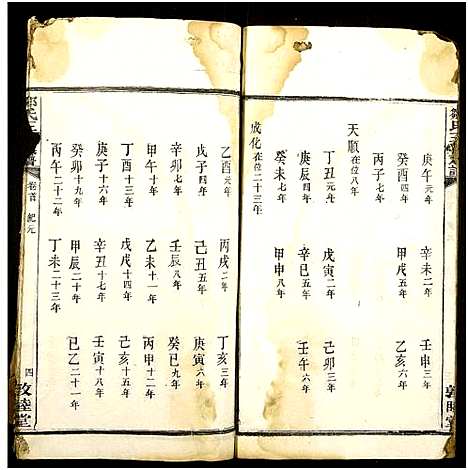 庚午元年 辛未二年 壬申三年
癸酉四年 甲戌五年 乙亥六年
丙子七年
天順在位八年
丁丑元年 戊寅二年 己卯三年
庚辰四年 辛巳五年 壬午六年
癸未七年 甲申八年
成化在位二十三年
乙酉元年 丙戌二年 丁亥三年
戊子四年 己丑五年 庚寅六年
辛卯七年 壬辰八年 癸巳九年
甲午十年 乙未十一年 丙申十二年
丁酉十三年 戊戌十四年 己亥十五年
庚子十六年 辛丑十七年 壬寅十八年
癸卯十九年 甲辰二十年 乙巳二十一年
丙午二十二年 丁未二十三年
卷首 紀元 四 敦睦堂